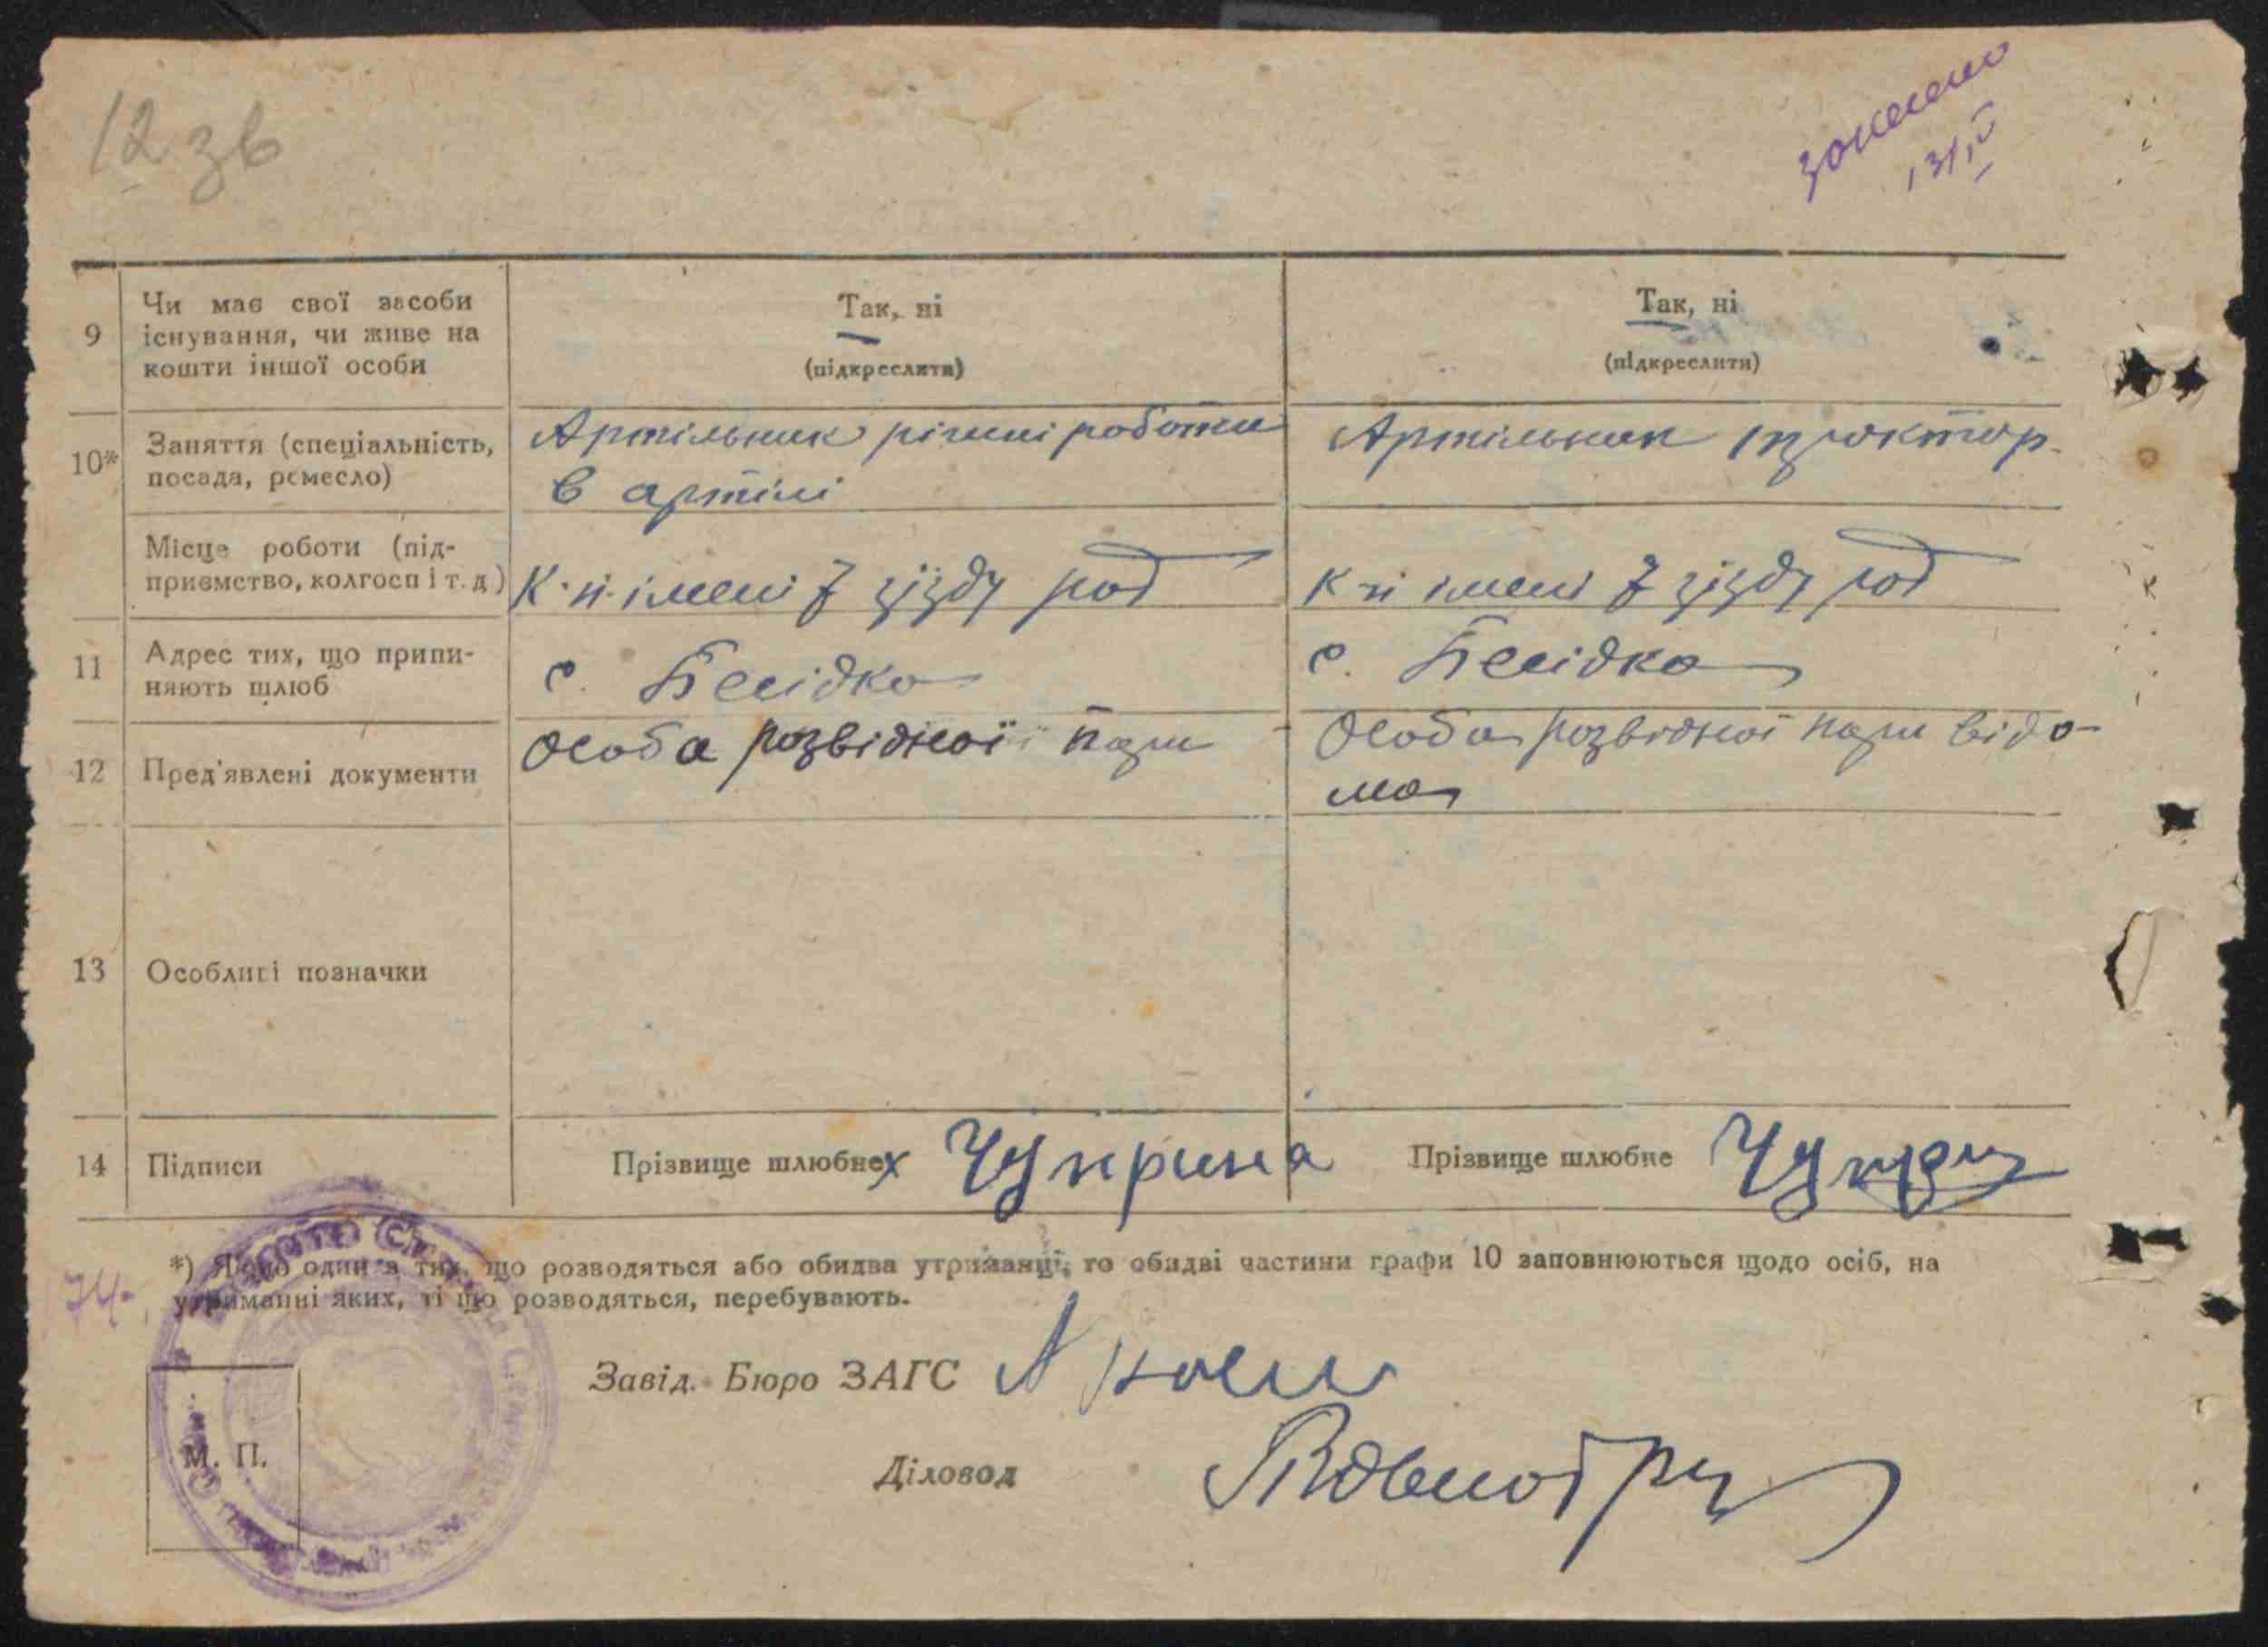 12 зв
13/V
9
Чи має свої засоби
існування, чи живе на
кошти іншої особи
Так, ні
(підкреслити)
Так, ні
(підкреслити)
10*
Заняття (спеціальність,
посада, ремесло)
Артільник різні роботи
в артілі
Артільник трактор.
Місце роботи (під-
приємство, колгосп і т. д)
К-п імені 7 зїзду рад
К-п імені 7 зїзду рад
11
Адрес тих, що припи-
няють шлюб
с. Бесідка
с. Бесідка
12
Пред'явлені документи
Особа розвідної пари
Особа розвідної пари відо-
ма
13
Особливі позначки
14
Підписи
Прізвище шлюбне Чуприна
Прізвище шлюбне
*) Якщо один з тих, що розводяться або обидва утриманці, то обидві частини графи 10 заповнюються щодо осіб, на
утриманні яких, ті що розводяться, перебувають.
74.
Завід. Бюро ЗАГС
Діловод
М. П.